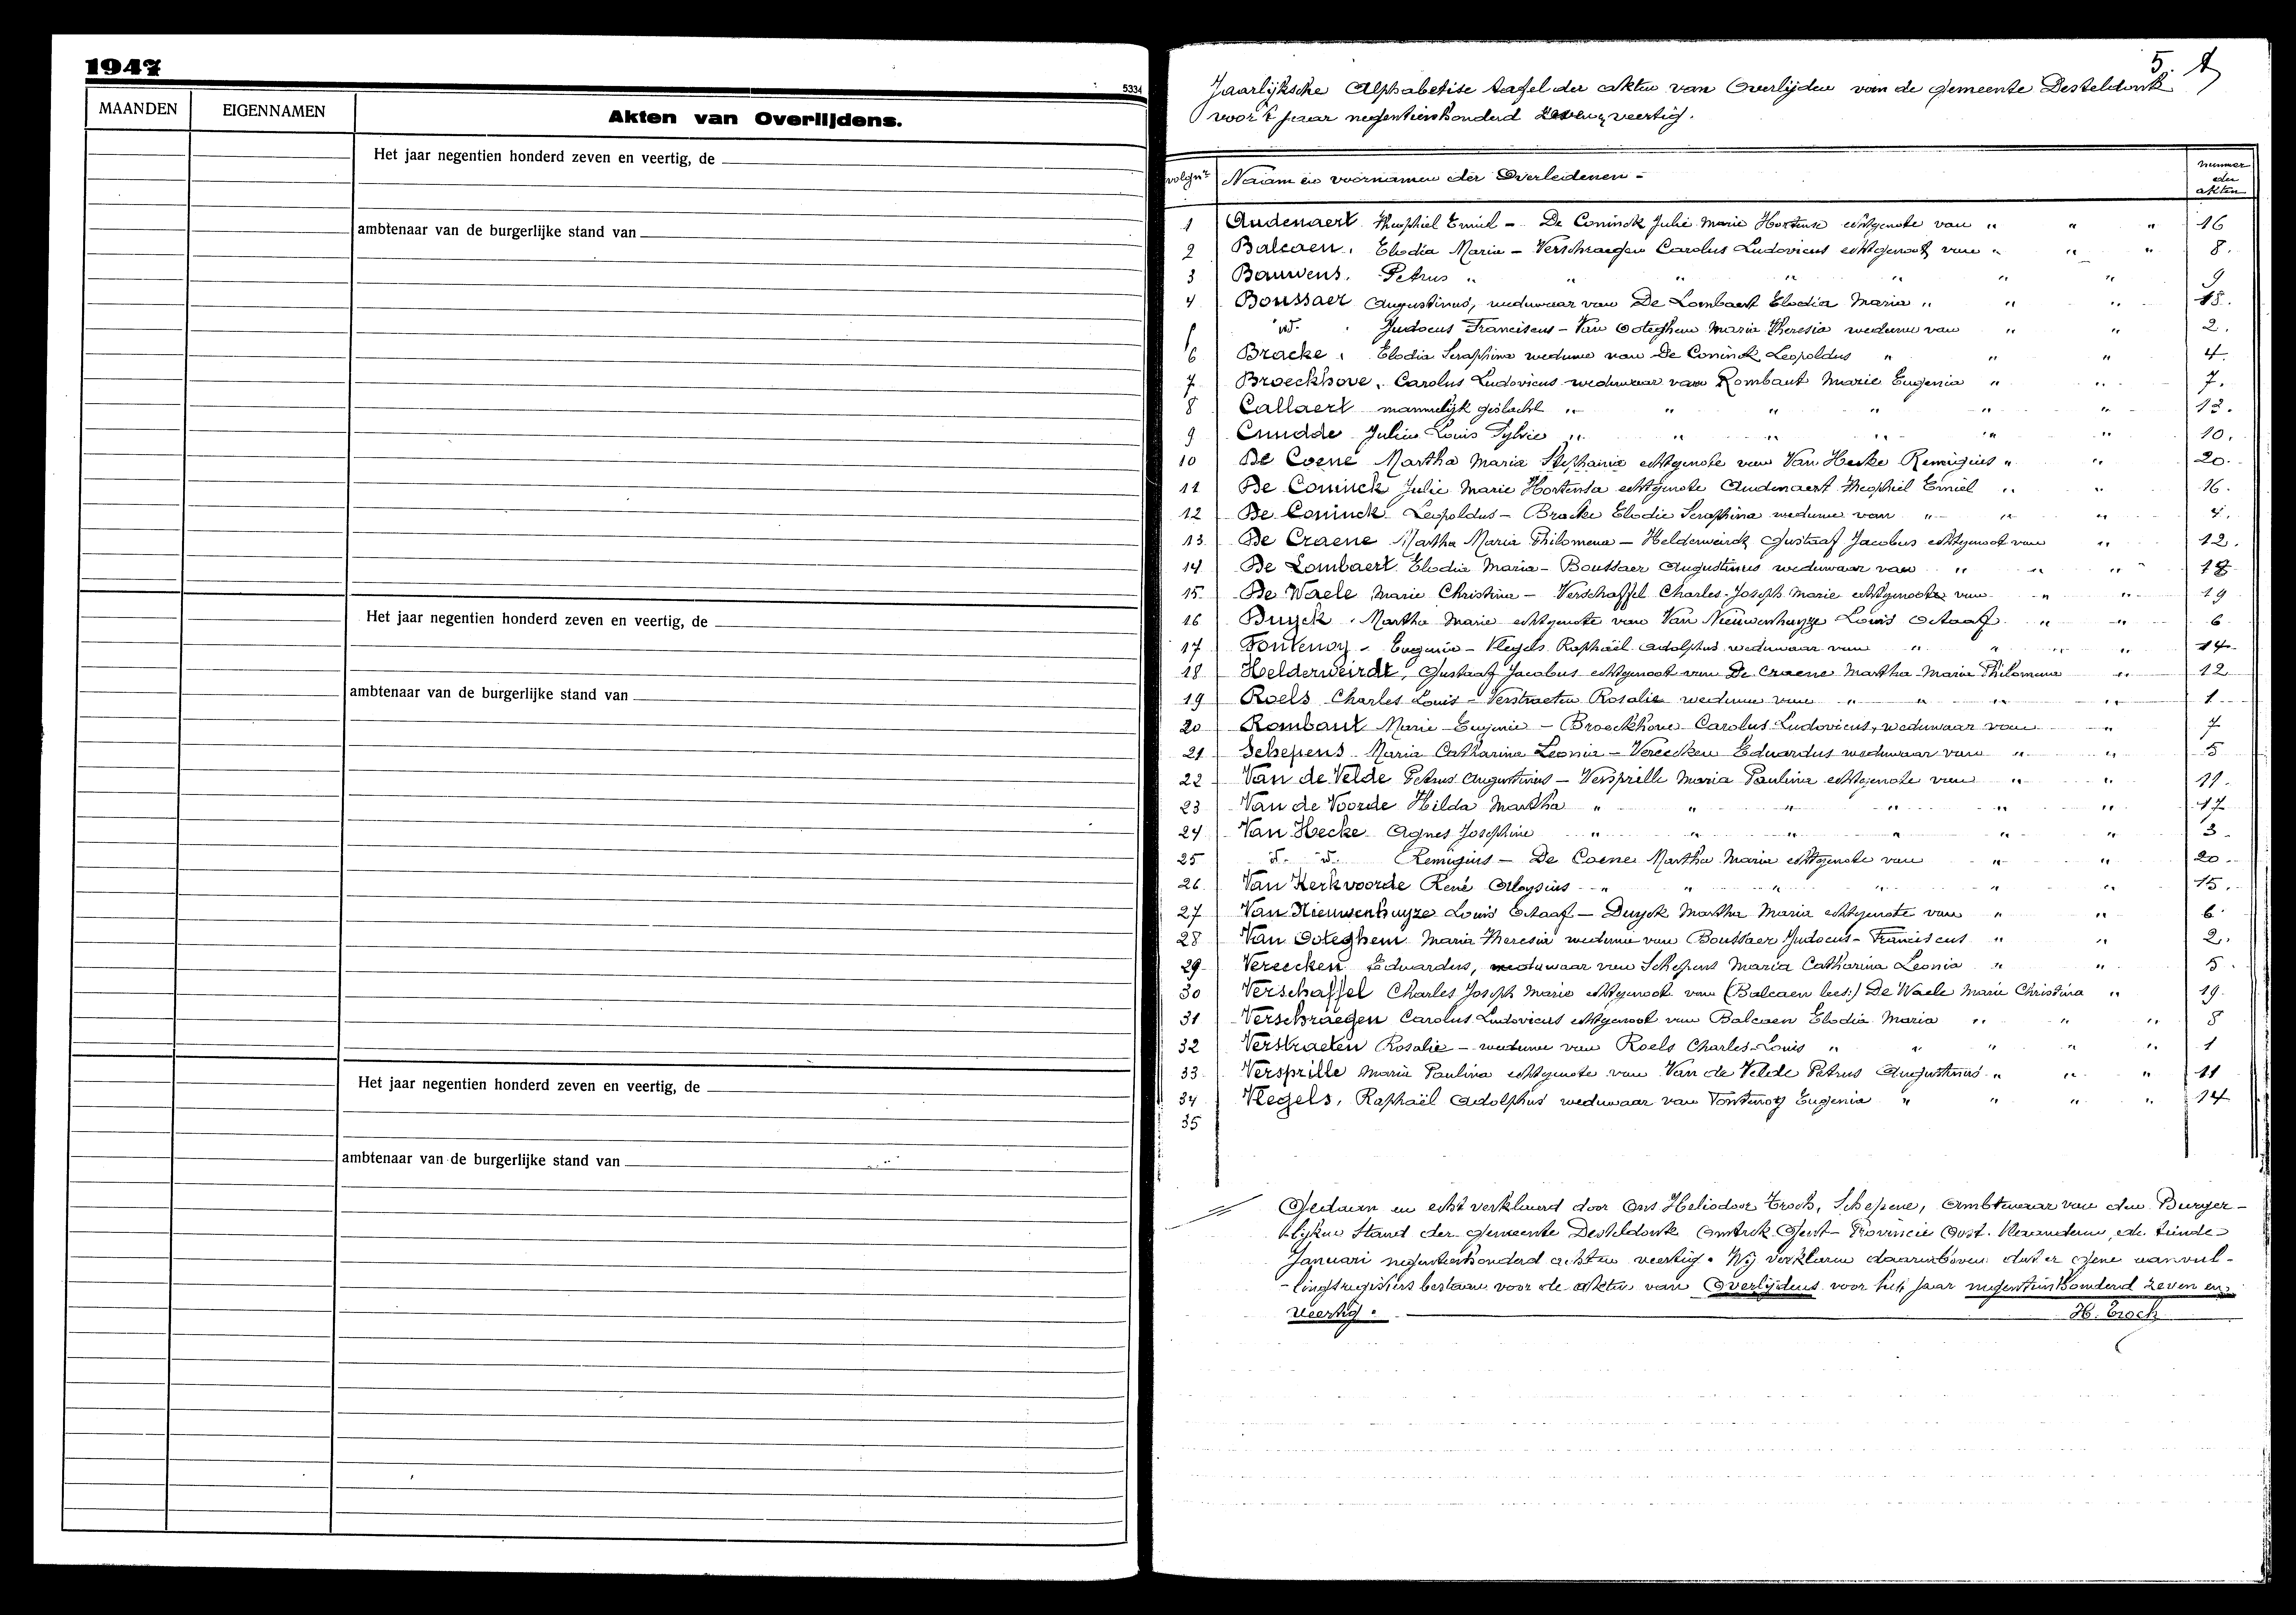 1947
5334
MAANDEN EIGENNAMEN Akten van Overlijdens.
Het jaar negentien honderd zeven en veertig, de
ambtenaar van de burgerlijke stand van
Het jaar negentien honderd zeven en veertig, de
ambtenaar van de burgerlijke stand van
Het jaar negentien honderd zeven en veertig, de
ambtenaar van de burgerlijke stand van
5.
Jaarlijksche Alphabetise tafel der akten van Overlijden van de gemeente Desteldonk
voor 't jaar negentienhonderd zeven veertig.
volgnr Naam en voornamen der Overledenen - nummer der akten
1 Audenaert Theophiel Emiel - De Coninck Julie Marie Hortense echtgenote van " " " 16
2 Balcaen, Elodia Maria - Verschraegen Carolus Ludovicus echtgenoot van " " " 8.
3 Bauwens, Petrus " " " " " " " 9
4 Boussaer Augustinus, weduwaar van De Lombaert Elodia Maria " " " 18.
id. Judocus Franciscus - Van Ooteghem Maria Theresia weduwe van " " 2.
6 Bracke, Elodia Seraphina weduwe van De Coninck Leopoldus " " " 4.
7 Broeckhove, Carolus Ludovicus weduwaar van Rombaut Marie Eugenia " " 7.
8 Callaert mannelijk geslacht " " " " " " 13.
9 Cnudde Julien Louis Sylvie " " " " " " 10.
10 De Coene Martha Maria Stephania echtgenote van Van Hecke Remigius " " 20.
11 De Coninck Julie Marie Hortensa echtgenote Audenaert Theophiel Emiel " " 16.
12 De Coninck Leopoldus - Bracke Elodie Seraphina weduwe van " " " 4.
13 De Craene Martha Maria Philomena - Helderweirdt Gustaaf Jacobus echtgenoot van " 12.
14 De Lombaert Elodia Maria - Boussaer Augustinus weduwaar van " " " 18
15 De Waele Marie Christina - Verschaffel Charles Joseph Marie echtgenoote van " " 19
16 Duyck, Martha Marie echtgenote van Van Nieuwenhuyze Louis Octaaf " " 6
17 Fontenoy - Eugenie - Vlegels Raphaël Adolphus weduwaar van " " " " 14
18 Helderweirdt, Gustaaf Jacobus echtgenoot van De Craene Martha Maria Philomena " 12
19 Roels Charles Louis - Verstraeten Rosalie weduwe van " " " " 1
20 Rombaut Marie Eugenie - Broeckhove Carolus Ludovicus, weduwaar van " 7
21 Schepens Maria Catharina Leonia - Vereecken Eduardus weduwaar van " " 5
22 Van de Velde Petrus Augustinus - Versprille Maria Paulina echtgenote van " " 11.
23 Van de Voorde Hilda Martha " " " " " " 17
24 Van Hecke Agnes Josephine " " " " " " 3
25 id. id. Remigius - De Coene Martha Maria echtgenote van " " 20.
26. Van Kerkvoorde René Aloysius " " " " " " 15.
27 Van Nieuwenhuyze Louis Octaaf - Duyck Martha Maria echtgenote van " " 6.
28 Van Ooteghem Maria Theresia weduwe van Boussaer Judocus-Franciscus " " 2.
29 Vereecken Eduardus, weduwaar van Schepens Maria Catharina Leonia " " 5.
30 Verschaffel Charles Joseph Marie echtgenoot van (Balcaen lees:) De Waele Marie Christina " 19.
31 Verschraegen Carolus Ludovicus echtgenoot van Balcaen Elodia Maria " " " 8
32 Verstraeten Rosalie - weduwe van Roels Charles-Louis " " " " " 1
33 Versprille Maria Paulina echtgenote van Van de Velde Petrus Augustinus " " " 11
34 Vlegels, Raphaël Adolphus weduwaar van Fontenoy Eugenia " " " " 14
35
Gedaan en echt verklaard door Ons Heliodoor Troch, Schepene, Ambtenaar van den Burger-
lijken Stand der gemeente Desteldonk Gent - Provincie Oost. Vlaanderen, de tiende
Januari negentienhonderd achten veertig. Wij verklaren daarenboven dat er gene aanvul-
-lingsregisters bestaan voor de akten van Overlijdens voor het jaar negentienhonderd zeven en
veertig. H. Troch